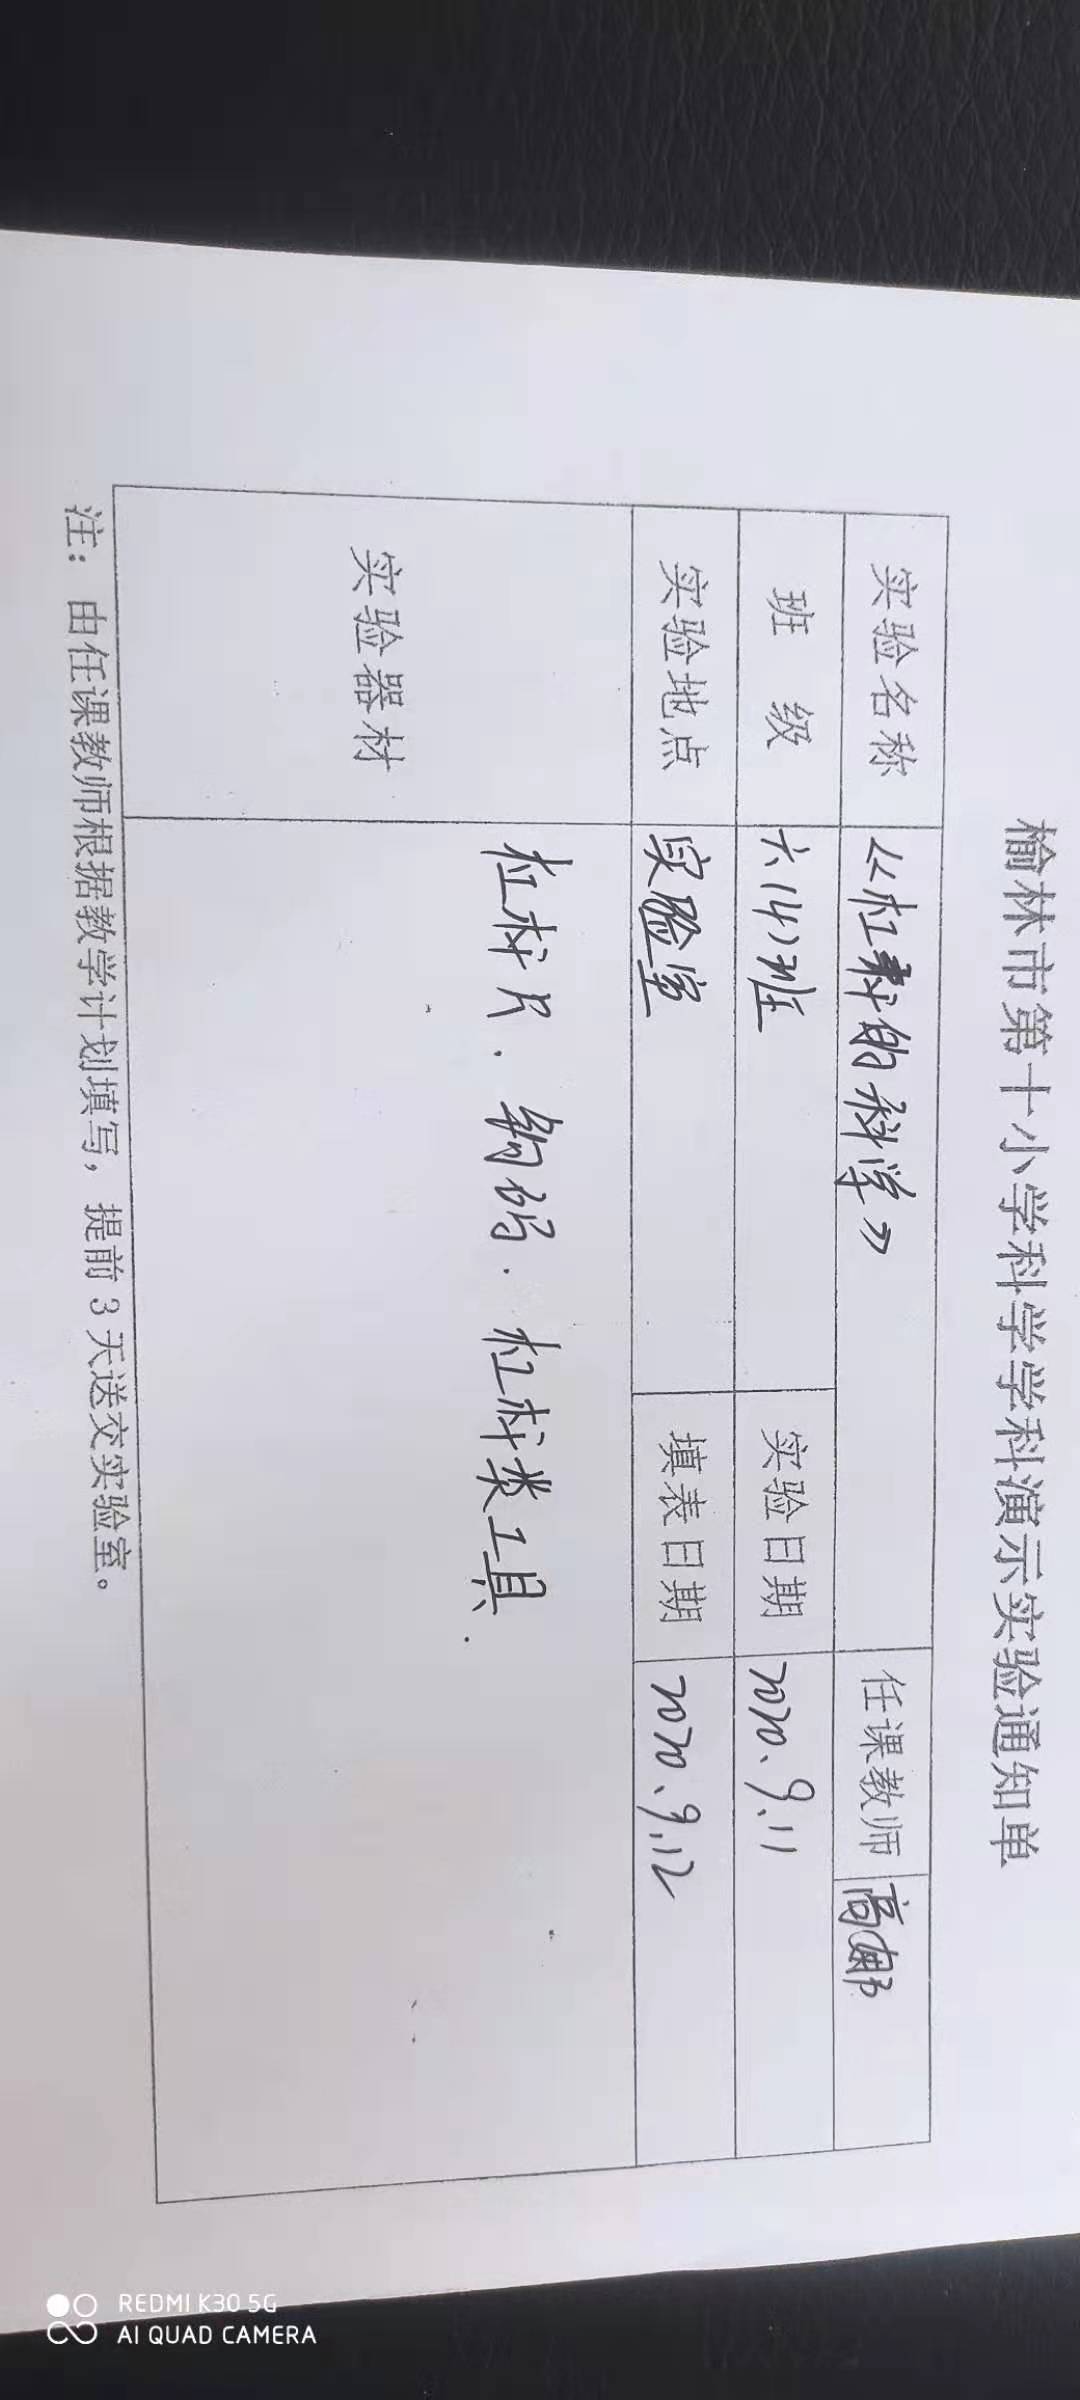 榆林市第十小学科学学科演示实验通知单
实验名称 《杠杆的科学》 任课教师 高娜
班 级 六(4)班 实验日期 2020.9.11
实验地点 实验室 填表日期 2020.9.12
实验器材 杠杆尺.钩码.杠杆类工具.
注：由任课教师根据教学计划填写，提前3天送交实验室。
REDMI K30 5G
AI QUAD CAMERA